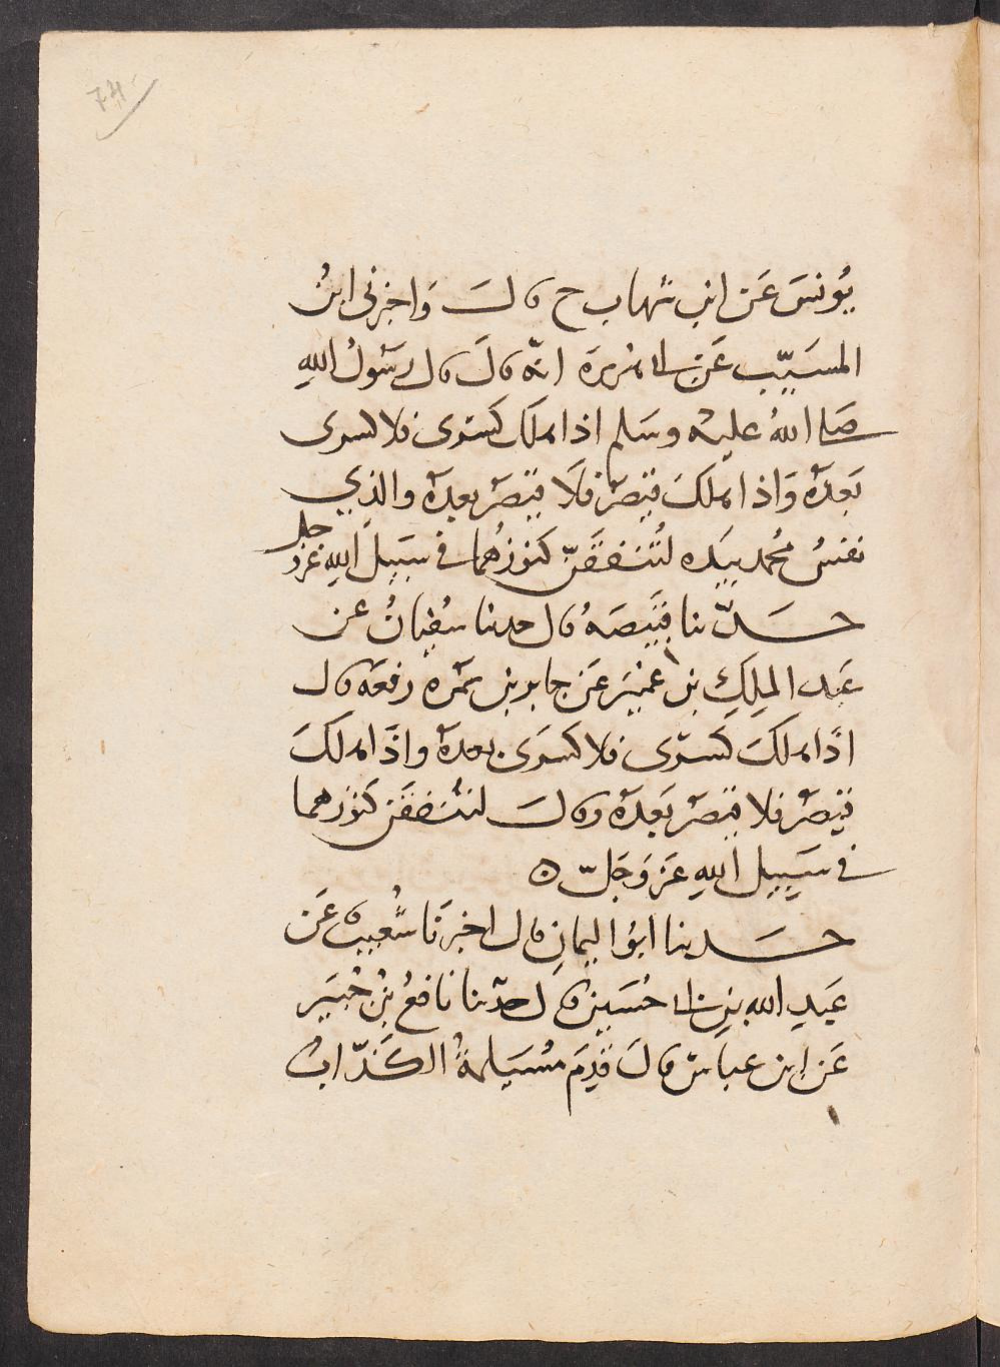 74
يُونسَ عَن ابنِ شهاب ح قالَ وَاخبرنى ابنُ
المسَيّب عَن ابى هريرةَ انّه قالَ قال رسَولُ اللهِ
صَلى اللهُ عليهْ وسَلم اذا هلَك كَسرى فلا كسرى
بَعدَهُ وَاذا هلكَ قيصَرُ فَلَا قيصَرَ بعدَهُ والذي
نفسُ مُحمد بيَده لَتُنفقَنّ كنوزهُما في سَبيل الله عَزوجل
حَدّثنا قبَيصَهُ قال حدثنا سُفيانُ عن
عَبد الملِكِ بن عُميَر عَن جابر بن سَمُره رفعَه قال
اذَا هلكَ كَسرَى فلا كسَرى بعدهُ واذَا هلكَ
قيصَر فلا قيصَر بَعدَهُ وقالَ لتُنفقَن كنوَزهما
في سَبيل اللهِ عَز وَجَلّ ه
حَدثنا ابوُ اليمانِ قال اخبرَنا شُعيبُ عَن
عَبدِ الله بنِ ابى حُسَين قالَ حدّثنا نافعُ بنُ جُبَير
عَن ابن عباسٍ قالَ قَدِمَ مُسَيلمةُ الكَذّابُ